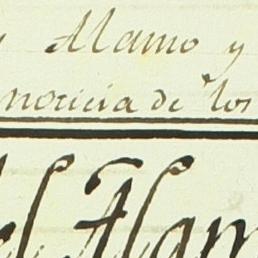 y Alamo y
noticia de los
el Alam